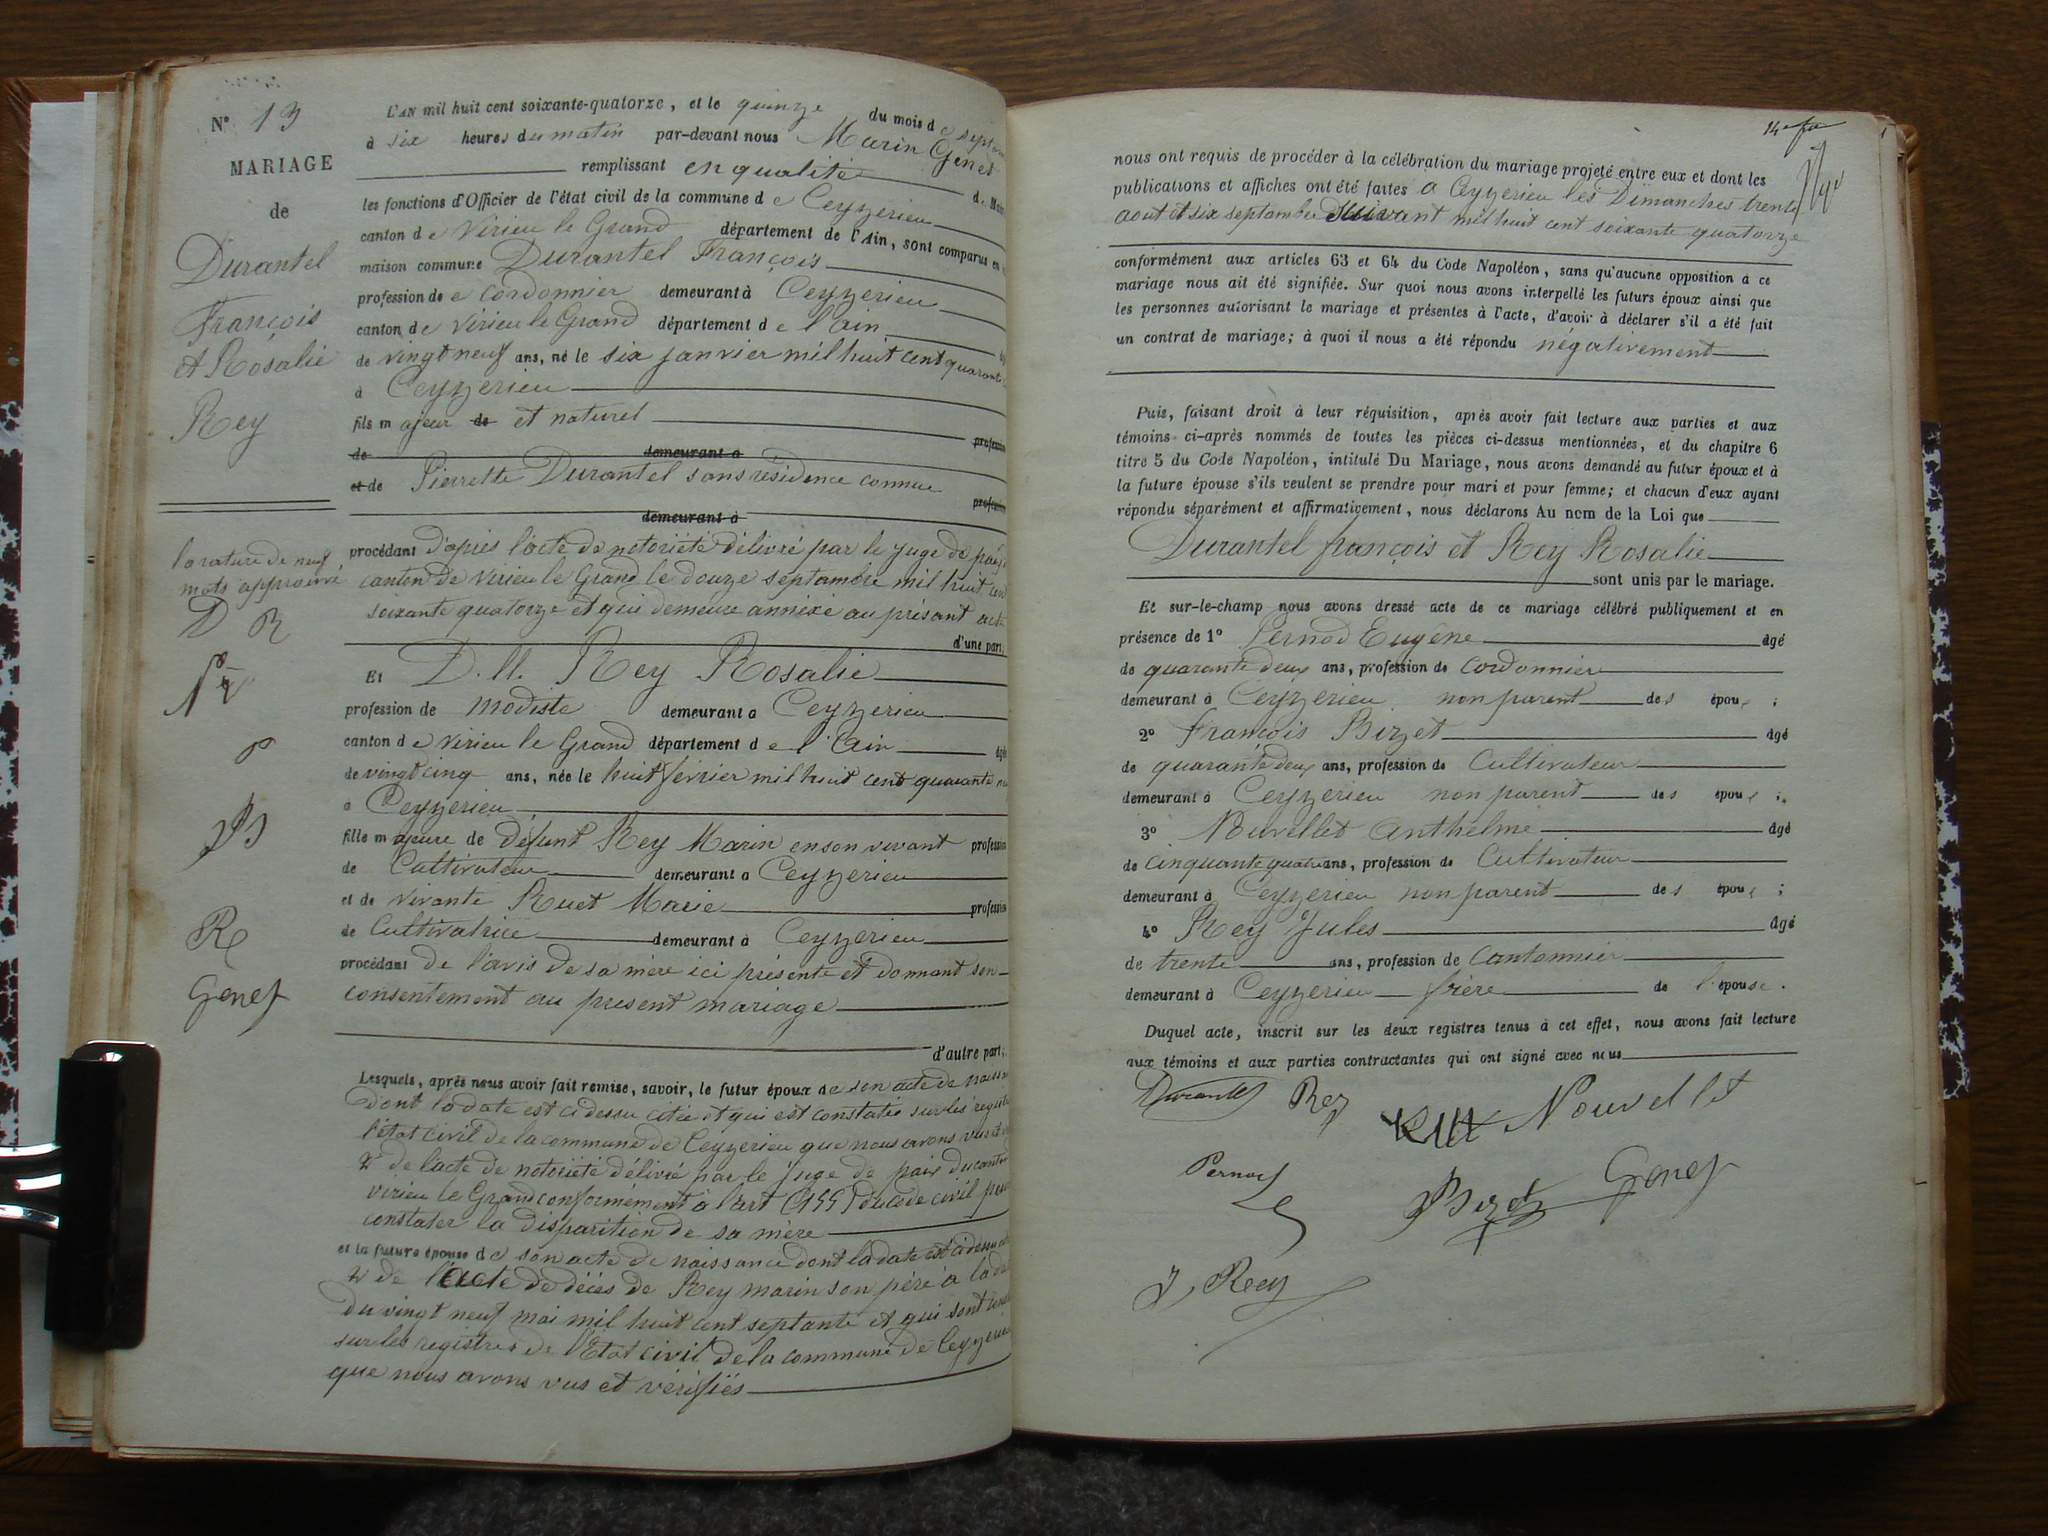 N° 13
MARIAGE
de
Durantel
François
et Rosalie
Rey
la rature de neuf
mots approuvé
D R
P
PB
R
Genet
L'AN mil huit cent soixante-quatorze, et le quinze du mois de septem
à six heures du matin par-devant nous Marin Genet
remplissant en qualité de Mai
les fonctions d'Officier de l'état civil de la commune de Ceyzerieu
canton de Virieu le Grand département de l'Ain, sont comparus en
maison commune Durantel François
profession de cordonnier demeurant à Ceyzerieu
canton de Virieu le Grand département de l'ain
de vingt neuf ans, né le six janvier mil huit cent quarante
à Ceyzerieu
fils majeur de et naturel
profession
de demeurant à
et de Pierrette Durantel sans résidence connue
profession
demeurant à
procédant d'apres l'acte de notorieté délivré par le juge de paix
canton de Virieu le Grand le douze septembre mil huit cent
soixante quatorze et qui demeure annexé au présent acte
d'une part;
Et D.lle Rey Rosalie
profession de modiste demeurant à Ceyzerieu
canton de Virieu le Grand département de l'ain âgée
de vingt cinq ans, née le huit fevrier mil huit cent quarante
à Ceyzerieu
fille majeure de défunt Rey Marin en son vivant profession
de Cultivateur demeurant à Ceyzerieu
et de vivante Ruet Marie profession
de Cultivatrice demeurant à Ceyzerieu
procédant de l'avis de sa mère ici présente et donnant son
consentement au present mariage
d'autre part;
Lesquels, après nous avoir fait remise, savoir, le futur époux de son acte de naissan
dont la date est ci dessu citée et qui est constatée sur les registre
l'état civil de la commune de Ceyzerieu que nous avons vus et
2° de l'acte de notorieté délivré par le juge de paix du canton
virieu le Grand conformément à l'art (155) du code civil pour
constater la disparition de sa mère
et la future épouse de son acte de naissance dont la date est ci dessu
2° de l'acte de décès de Rey marin son père à la date
du vingt neuf mai mil huit cent septante et qui sont
sur les registres de l'Etat civil de la commune de Ceyzerieu
que nous avons vus et vérifiés
nous ont requis de procéder à la célébration du mariage projeté entre eux et dont les
publications et affiches ont été faites à Ceyzerieu les Dimanches trente
aout et six septembre suivant mil huit cent soixante quatorze
conformément aux articles 63 et 64 du Code Napoléon, sans qu'aucune opposition à ce
mariage nous ait été signifiée. Sur quoi nous avons interpellé les futurs époux ainsi que
les personnes autorisant le mariage et présentes à l'acte, d'avoir à déclarer s'il a été fait
un contrat de mariage; à quoi il nous a été répondu négativement
Puis, faisant droit à leur réquisition, après avoir fait lecture aux parties et aux
témoins ci-après nommés de toutes les pièces ci-dessus mentionnées, et du chapitre 6
titre 5 du Code Napoléon, intitulé Du Mariage, nous avons demandé au futur époux et à
la future épouse s'ils veulent se prendre pour mari et pour femme; et chacun d'eux ayant
répondu séparément et affirmativement, nous déclarons Au nom de la Loi que
Durantel françois et Rey Rosalie
sont unis par le mariage.
Et sur-le-champ nous avons dressé acte de ce mariage célébré publiquement et en
présence de 1° Pernod Eugène âgé
de quarante deux ans, profession de cordonnier
demeurant à Ceyzerieu non parent des époux ;
2° François Bizet âgé
de quarante deux ans, profession de Cultivateur
demeurant à Ceyzerieu non parent des époux ;
3° Nouvellet Anthelme âgé
de cinquante quatre ans, profession de Cultivateur
demeurant à Ceyzerieu non parent des époux ;
4° Rey Jules âgé
de trente ans, profession de Cantonnier
demeurant à Ceyzerieu frère de l'épouse.
Duquel acte, inscrit sur les deux registres tenus à cet effet, nous avons fait lecture
aux témoins et aux parties contractantes qui ont signé avec nous
Durantel Rey Nouvellet
Pernod Bizet Genet
J. Rey